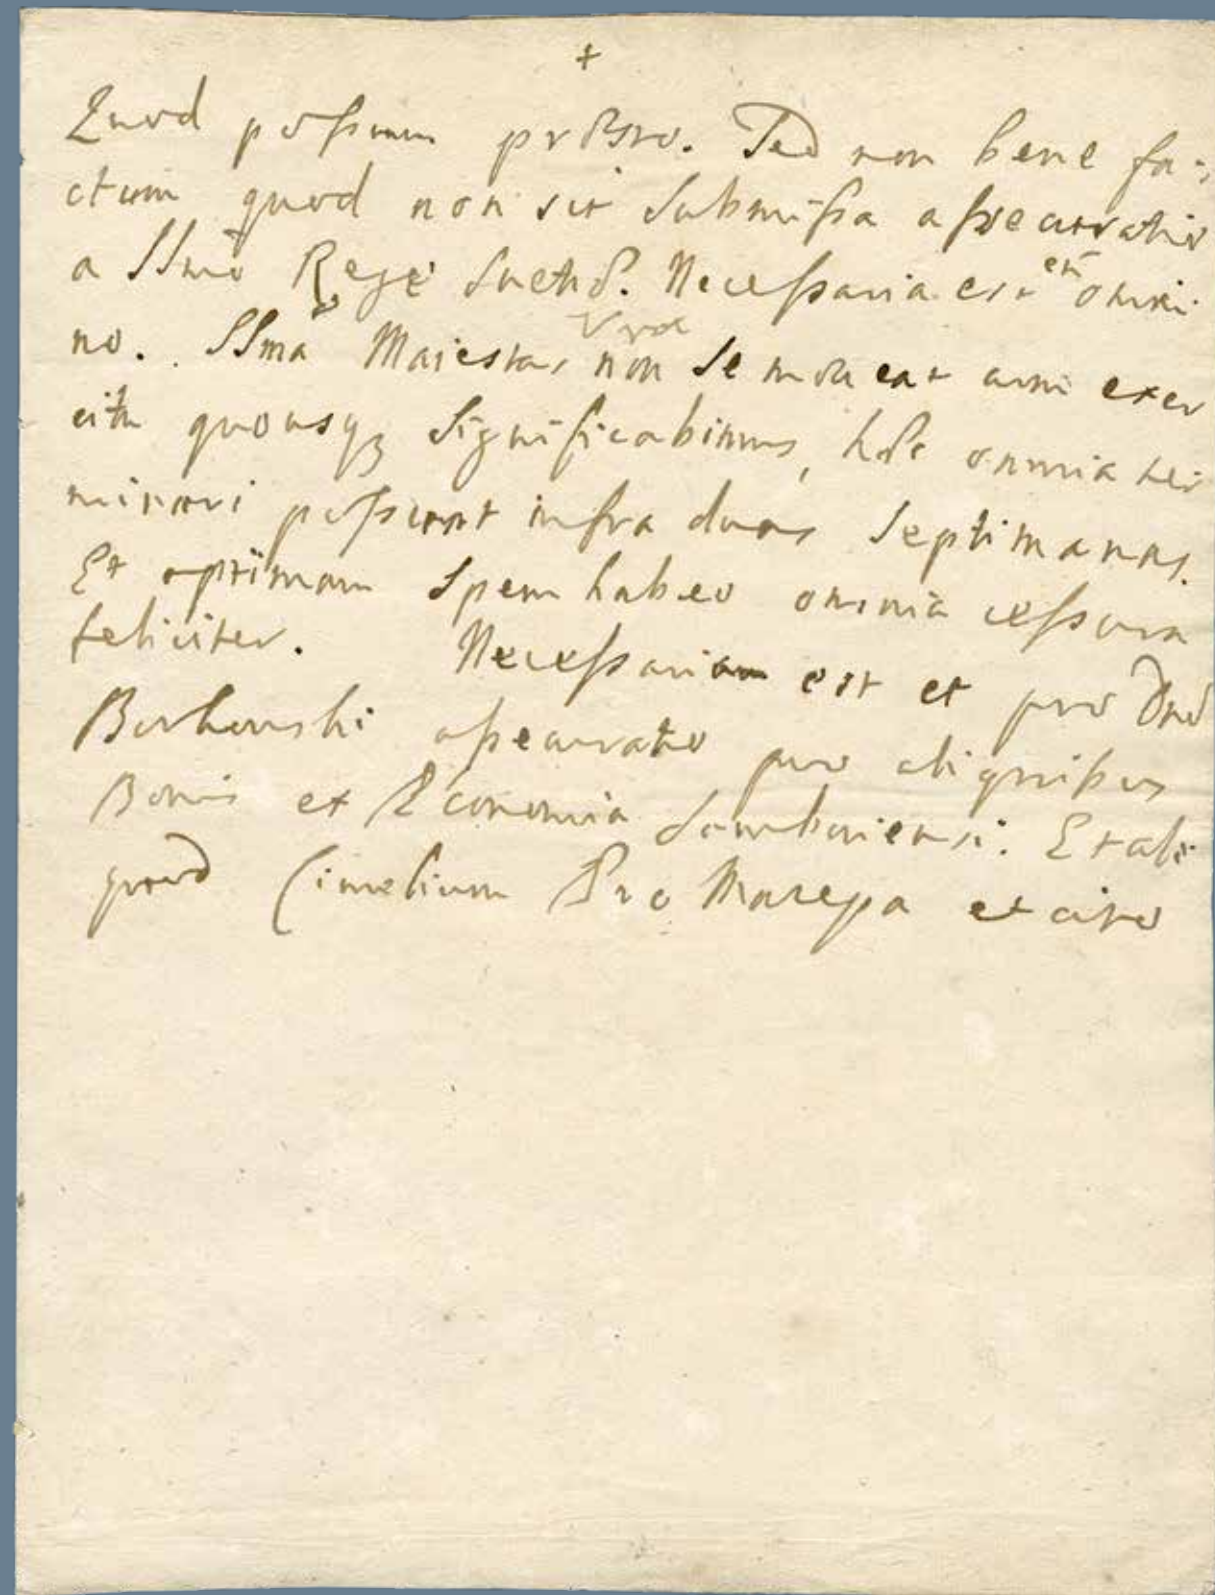 +
Quod possum probero. Sed non bene fa-
ctum quod non sit submissa assecuratio
a SSmo Rege Suetiæ. Necessaria est em̄ omni
no. SSma Maiestas Vra non se moueat cum exer
citu quousq3 significabimus, hæc omnia ter
minari possunt infra duas septimanas.
Et optimam spem habeo omnia cessura
feliciter. Necessaria est et pro Dno
Borkowski assecuratio pro aliquibus
Bonis et Economia Samboriensi. Et ali
quod Cimelium Pro Mazepa et cito